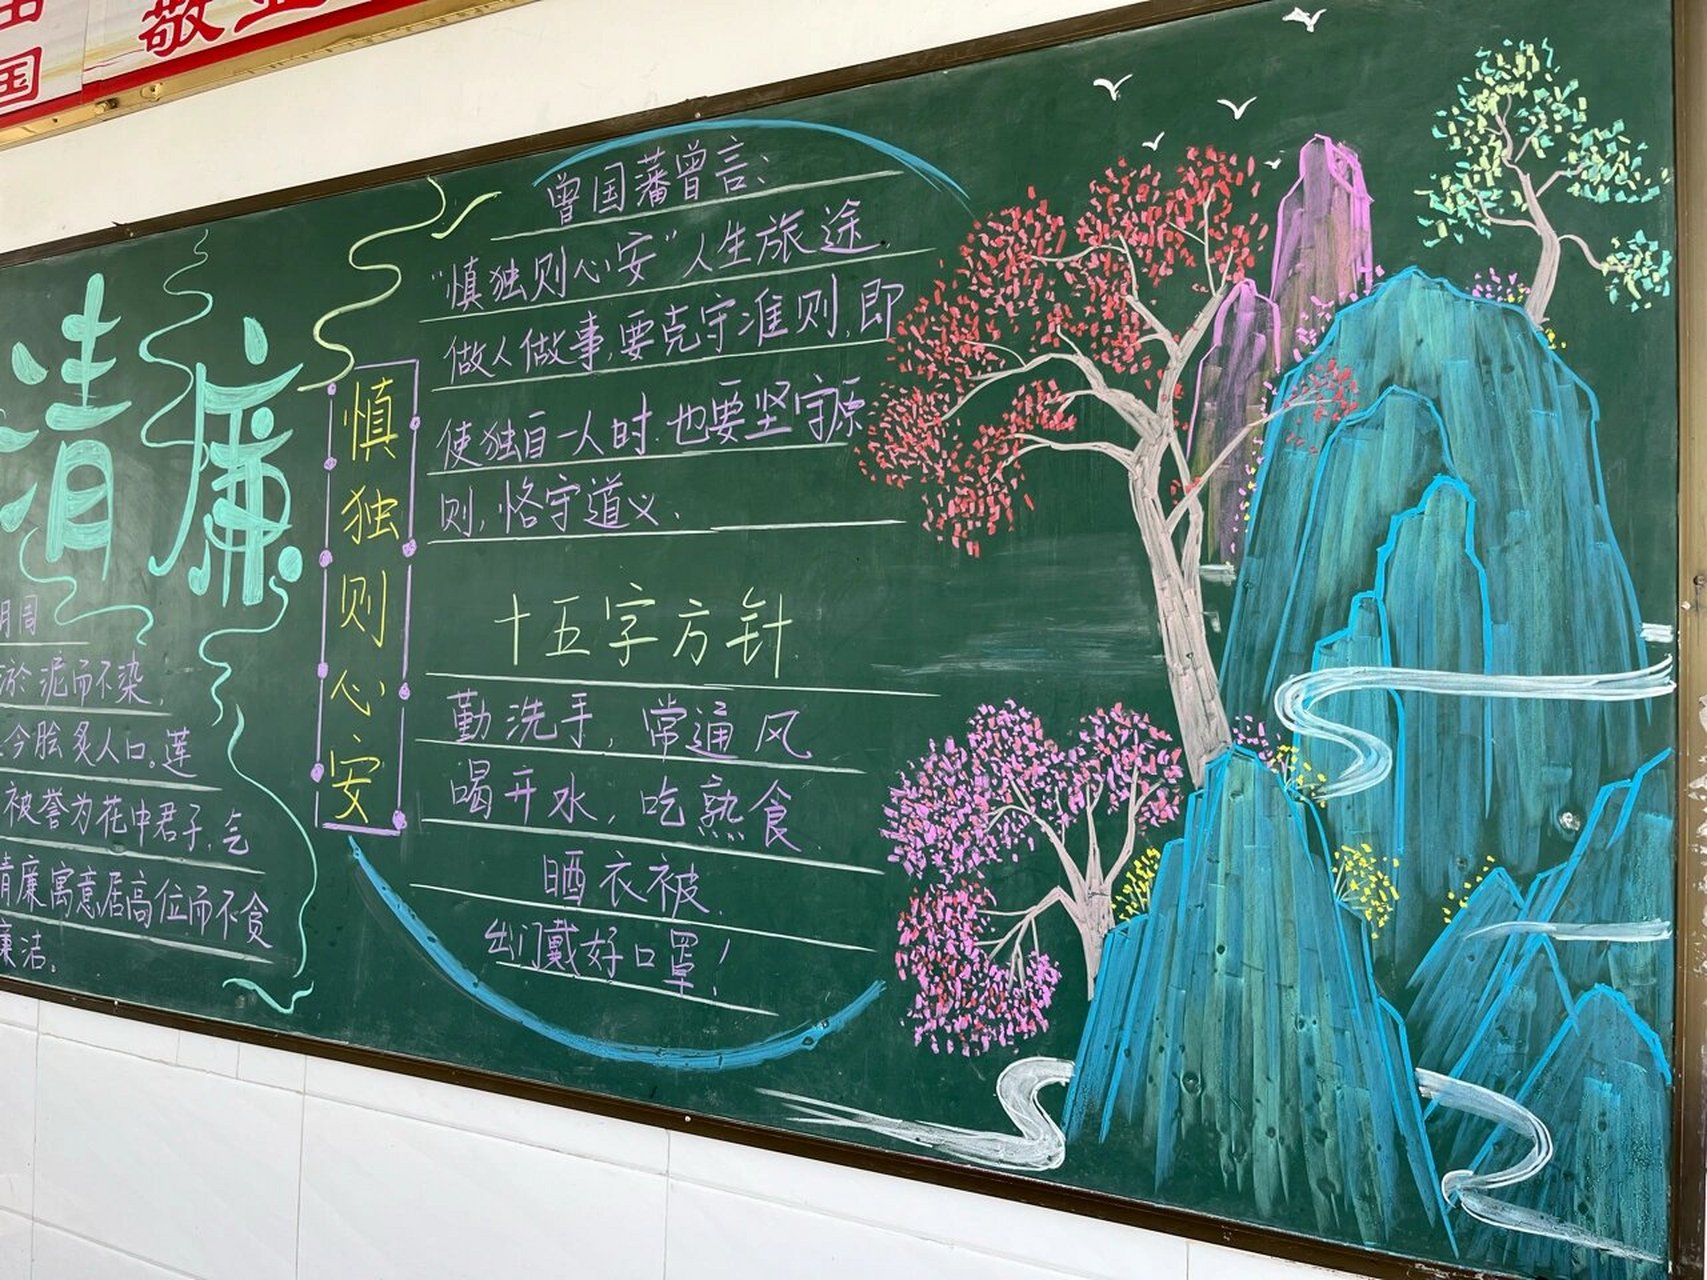 敬业
国
清廉
明周
淤泥而不染，
今脍炙人口。莲
被誉为花中君子，气
清廉寓意居高位而不贪
廉洁。
慎独则心安
曾国藩曾言：
“慎独则心安”人生旅途
做人做事，要克守准则，即
使独自一人时，也要坚守原
则，恪守道义。
十五字方针
勤洗手，常通风
喝开水，吃熟食
晒衣被
出门戴好口罩！